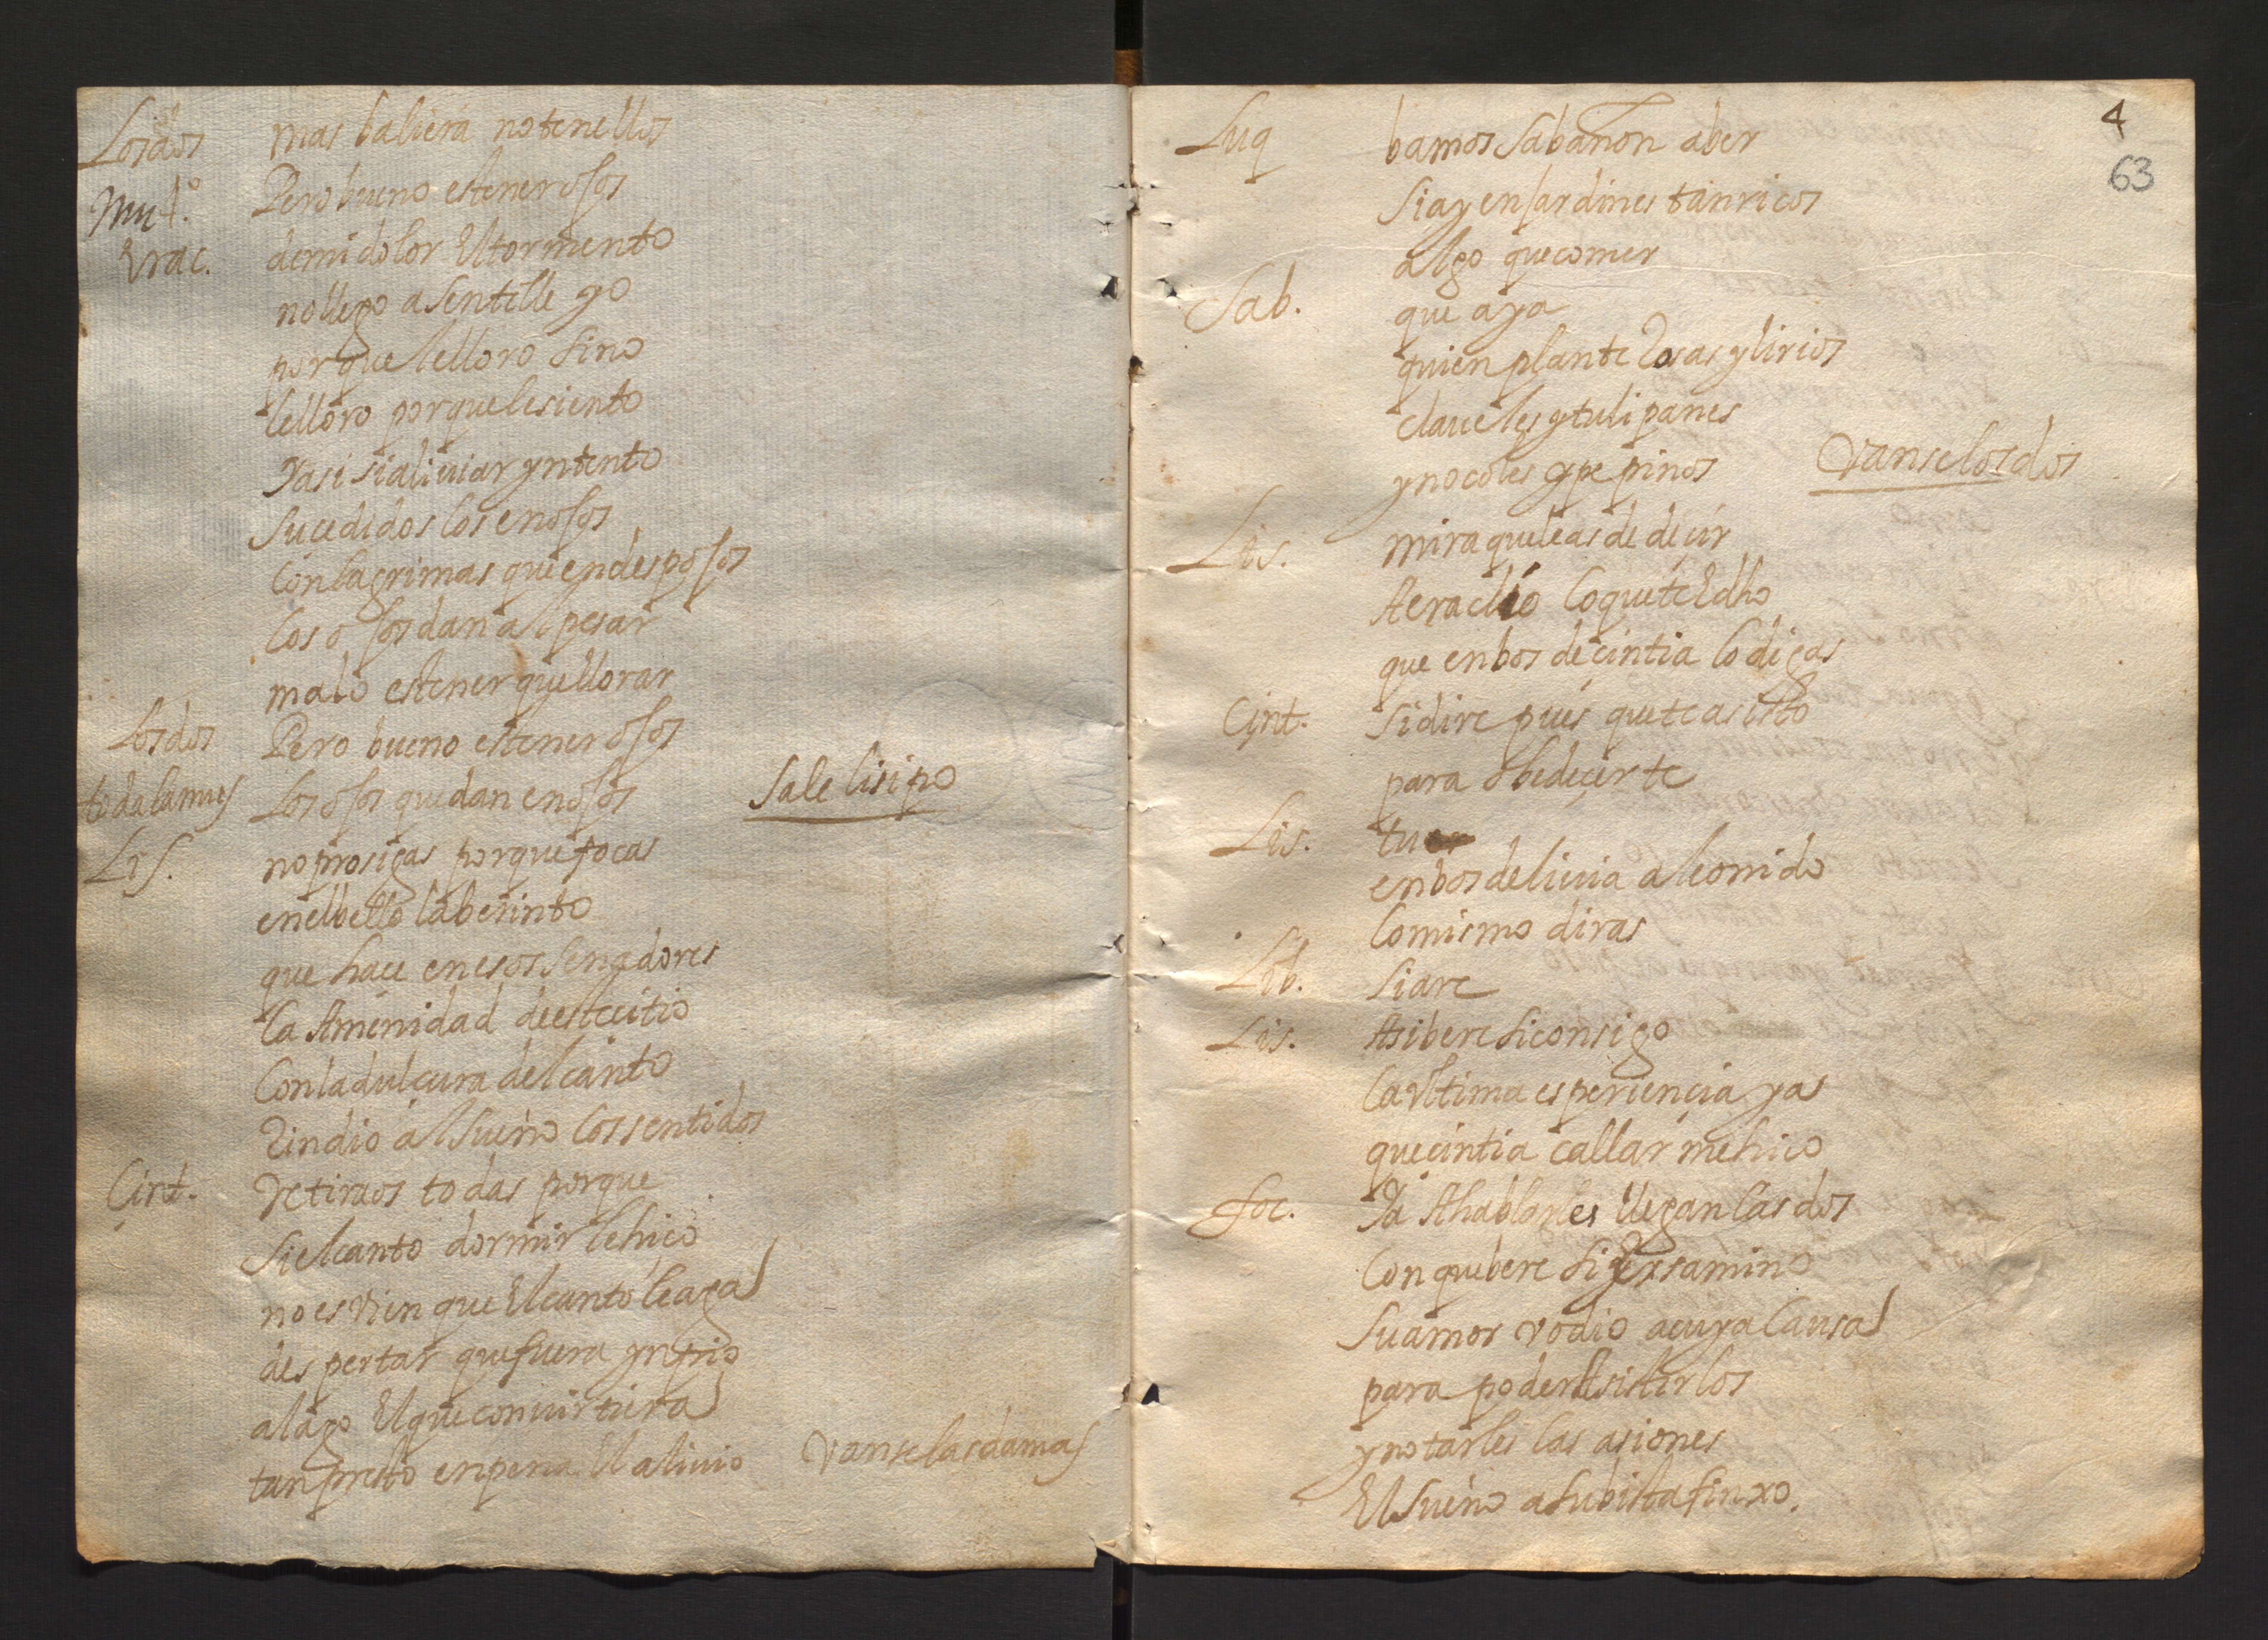 Losdos mas baliera notenellos
Mu 1.º Pero bueno estener ojos
Erac. demi dolor El tormento
nollego a Sentille yo
porque le lloro sino
lelloro porque lesiento
Yasi si aliuiar yntento
Sucedidos los enojos
Conlagrimas que endespojos
los ojos dan al pesar
malo estener quellorar
Losdos Pero bueno estener ojos
toda la mus Los ojos quedan enojos Sale lisipo
Lis. noprosigas porque focas
enelbello laberinto
que hace enesos Senadores
la Amenidad deestecitio
Conladulçura delcanto
Rindio al Sueño los sentidos
Cint. Retiraos todas porque
Si elcanto dormir lehico
no es vien que El canto leaga
despertar que fuera ynpio
alago El que conuirtiera
tan presto enpena El aliuio Vanse lasdamas
4
63
Luq bamos Sabañon aber
Siay en Jardines tanricos
algo quecomer
Sab. que aya
quien plante Rosas y lirios
claueles y tulipanes
ynocoles y pepinos Vanselosdos
Lis. mira queleas de decir
Aeraclio loquete Edho
que enbos de cintia lo digas
Cint. Si dire pues queteasisto
para obedecerte
Lis. tu
enbos deliuia aleonido
lomismo diras
Lib. Siare
Lis. Asibere siconsigo
la Vltima esperiencia yas
quecintia callar mehico
foc. Ya Ahablarles llegan las dos
Con quebere si Exsamino
Suamor v odio acuya Causa
para poder Resistirlos
ynotarles las asiones
El Sueño asubista finxo.